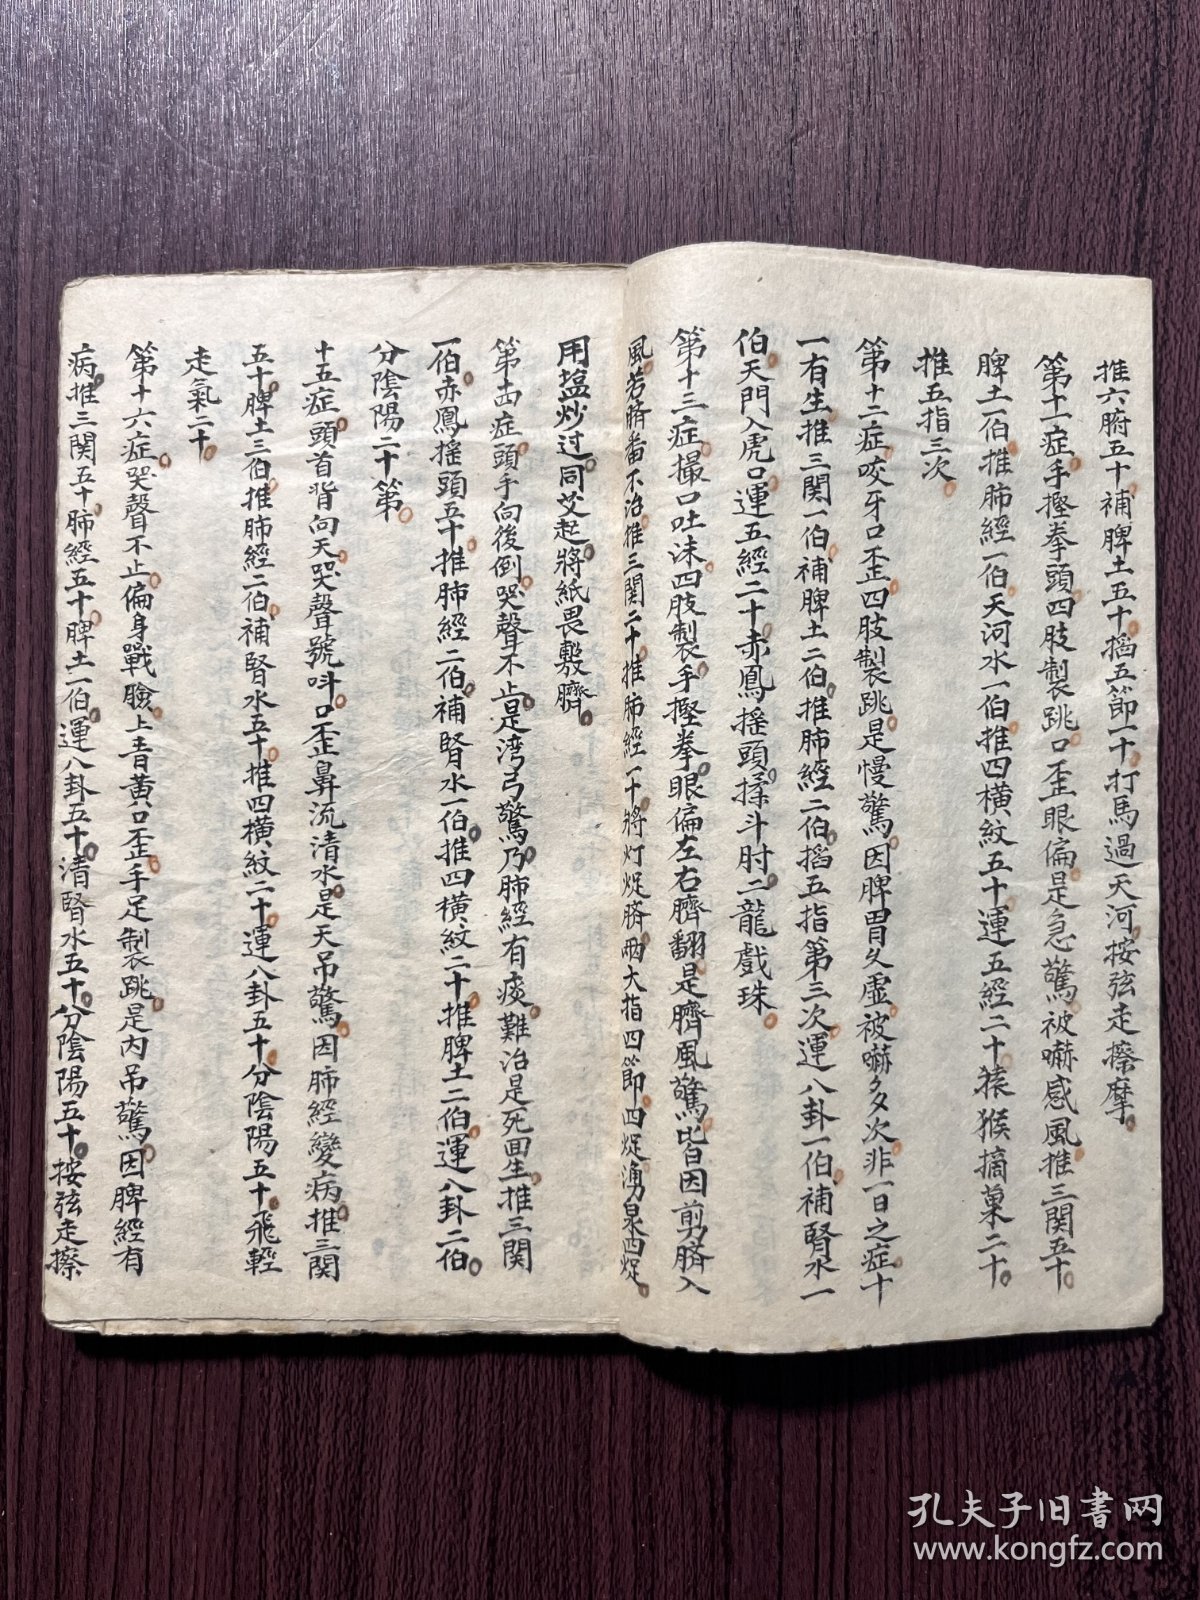 推六腑五十補脾土五十掐五節一十打馬過天河按弦走擦摩
第十一症手握拳頭四肢製跳口歪眼偏是急驚被嚇感風推三関五十
脾土一伯推肺經一伯天河水一伯推四橫紋五十運五經二十猿猴摘菓二十
推五指三次
第十二症咬牙口歪四肢製跳是慢驚因脾胃久虛被嚇多次非一日之症十
一有生推三関一伯補脾土二伯推肺經二伯掐五指第三次運八卦一伯補腎水一
伯天門入虎口運五經二十赤鳳搖頭揉斗肘二龍戲珠
第十三症撮口吐沫四肢製手握拳眼偏左右臍翻是臍風驚皆因剪臍入
風若臍番不治推三関二十推肺經一十將灯焠臍両大指四節四焠湧泉四焠
用盐炒过同艾起將紙畏敷臍
第十四症頭手向後倒哭聲不止是湾弓驚乃肺經有痰難治是死回生推三関
一伯赤鳳搖頭五十推肺經二伯補腎水一伯推四橫紋二十推脾土二伯運八卦二伯
分陰陽二十第
十五症頭首背向天哭聲號呌口歪鼻流清水是天吊驚因肺經變病推三関
五十脾土三伯推肺經二伯補腎水五十推四橫紋二十運八卦五十分陰陽五十飛輕
走氣二十
第十六症哭聲不止偏身戰臉上青黃口歪手足製跳是内吊驚因脾經有
病推三関五十肺經五十脾土一伯運八卦五十清腎水五十分陰陽五十按弦走擦
孔夫子旧書网
www.kongfz.com